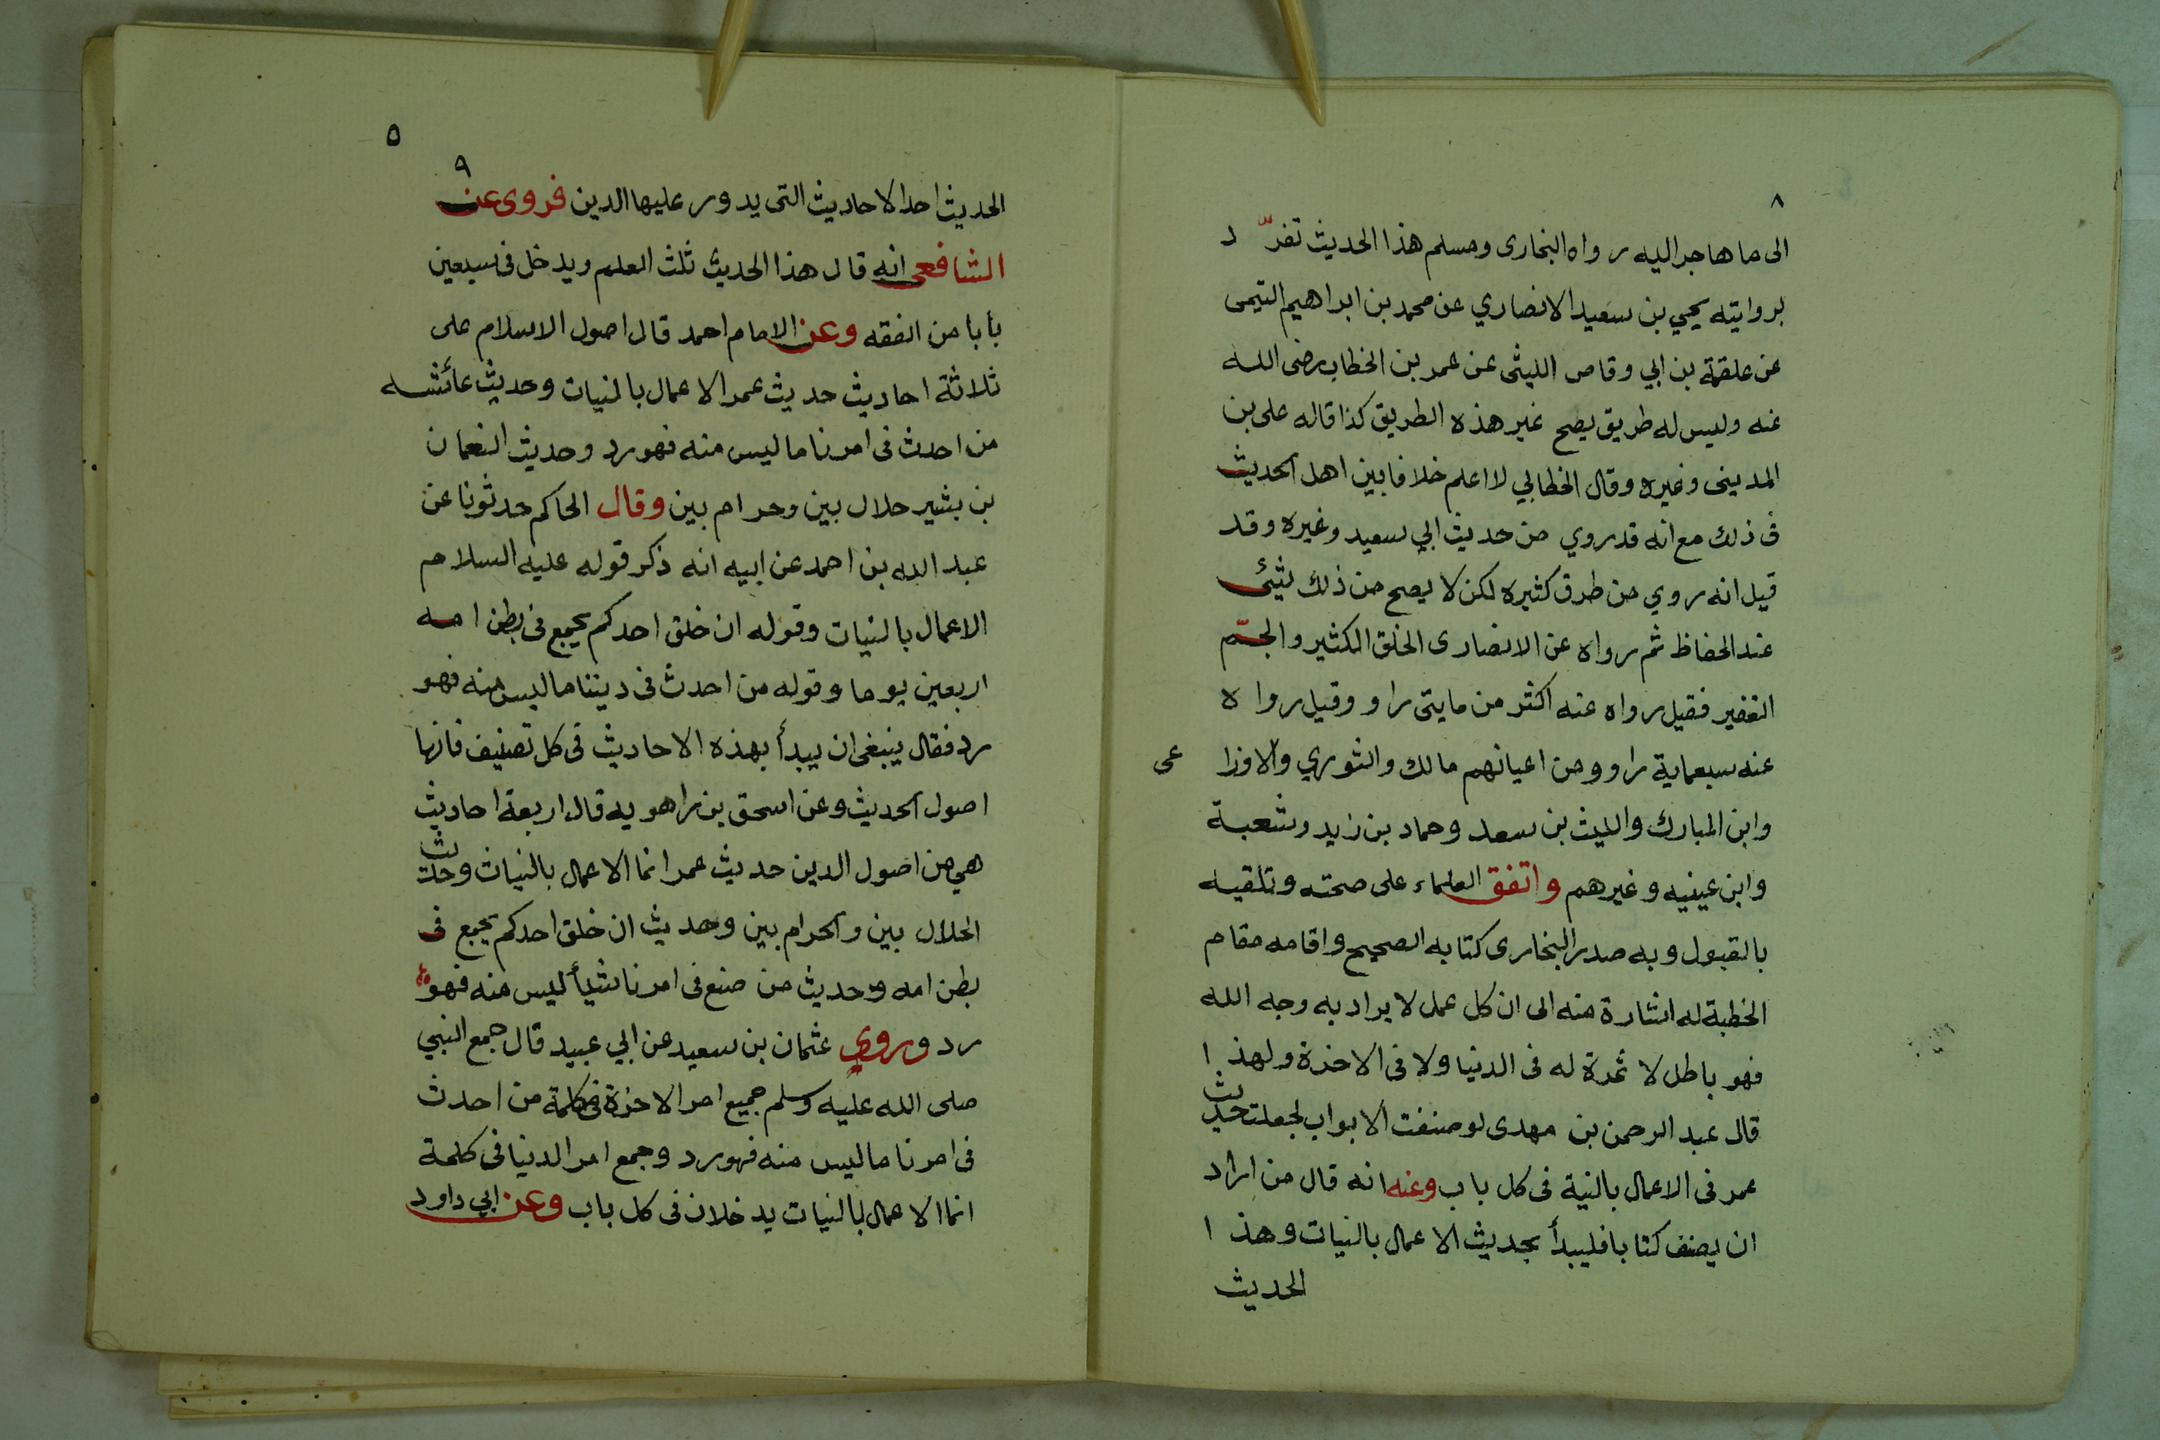 ٨
الى ما هاجر اليه رواه البخارى ومسلم هذا الحديث تفرّد
بروايته يحيي بن سعيد الانصاري عن محمد بن ابراهيم التيمى
عن علقمة بن ابي وقاص الليثى عن عمر بن الخطاب رضى الله
عنه وليس له طريق يصح غير هذه الطريق كذا قاله على بن
المدينى وغيره وقال الخطابي لا اعلم خلافا بين اهل الحديث
فى ذلك مع انه قد روي من حديث ابي سعيد وغيره وقد
قيل انه روي من طرق كثيره لكن لا يصح من ذلك شيئ
عند الحفاظ ثم رواه عن الانصارى الخلق الكثير والجمّ
الغفير فقيل رواه عنه اكثر من مايتى راو وقيل رواه
عنه سبعماية راو ومن اعيانهم مالك والثوري والاوزاعى
وابن المبارك والليث بن سعد وحماد بن زيد وشعبة
وابن عينيه وغيرهم واتفق العلماء على صحته وتلقيه
بالقبول وبه صدر البخارى كتابه الصحيح واقامه مقام
الخطبة له اشارة منه الى ان كل عمل لا يراد به وجه الله
فهو باطل لا ثمرة له فى الدنيا ولا فى الاخرة ولهذا
قال عبد الرحمن بن مهدى لو صنفت الابواب لجعلت حديث
عمر فى الاعمال بالنية فى كل باب وعنه انه قال من اراد
ان يصنف كتابا فليبدأ بحديث الاعمال بالنيات وهذا
الحديث
٥
٩
الحديث احد الاحاديث التى يدور عليها الدين فروى عن
الشافعى انه قال هذا الحديث ثلث العلم ويدخل فى سبعين
بابا من الفقه وعن الامام احمد قال اصول الاسلام على
ثلاثة احاديث حديث عمر الاعمال بالنيات وحديث عائشه
من احدث فى امرنا ما ليس منه فهو رد وحديث النعمان
بن بشير حلال بين وحرام بين وقال الحاكم حدثونا عن
عبد الله بن احمد عن ابيه انه ذكر قوله عليه السلام
الاعمال بالنيات وقوله ان خلق احدكم يجمع فى بطن امه
اربعين يوما وقوله من احدث فى ديننا ما ليس منه فهو
رد فقال ينبغى ان يبدأ بهذه الاحاديث فى كل تصنيف فانها
اصول الحديث وعن اسحق بن راهويه قال اربعة احاديث
هي من اصول الدين حديث عمر انما الاعمال بالنيات وحديث
الحلال بين والحرام بين وحديث ان خلق احدكم يجمع فى
بطن امه وحديث من صنع فى امرنا شيأ ليس منه فهو
رد وروي عثمان بن سعيد عن ابي عبيد قال جمع النبي
صلى الله عليه وسلم جميع امر الاخرة فى كلمة من احدث
فى امرنا ما ليس منه فهو رد وجمع امر الدنيا فى كلمة
انما الاعمال بالنيات يدخلان فى كل باب وعن ابي داود